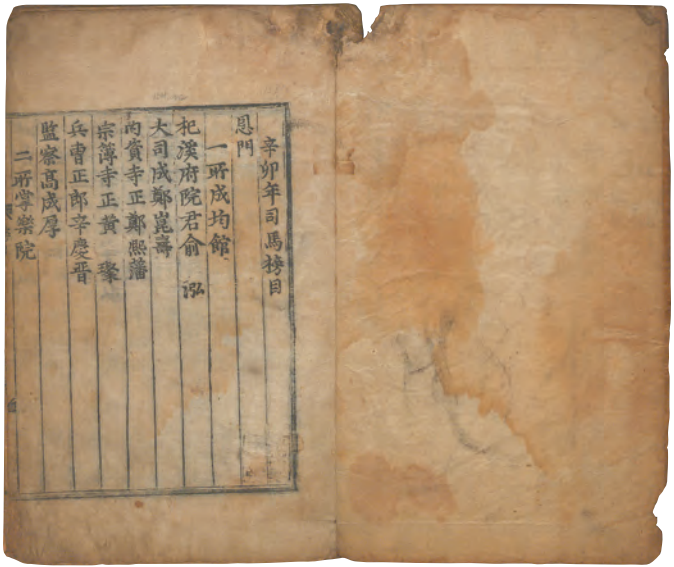 辛卯年司馬榜目
恩門
一所成均館
杞溪府院君俞 泓
大司成鄭崑壽
內資寺正鄭熙藩
宗簿寺正黃
兵曹正郎辛慶晋
監察高成厚
二所掌樂院